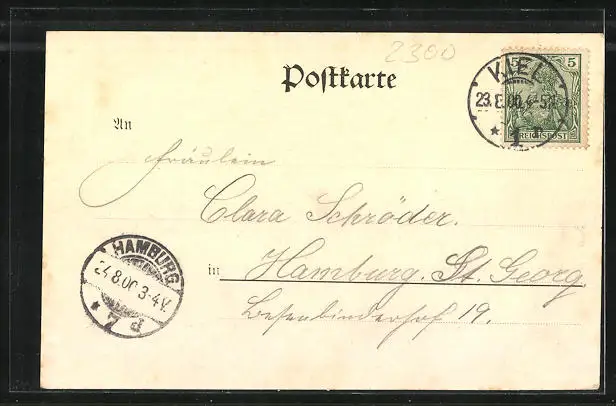 2300
Postkarte
5 5
REICHSPOST
KIEL
23.8.00.4-5N.
* 1 a
An
Fräulein
Clara Schröder.
in Hamburg. St. Georg.
Besenbinderhof 19.
HAMBURG
24.8.00 3-4V.
* 7 d